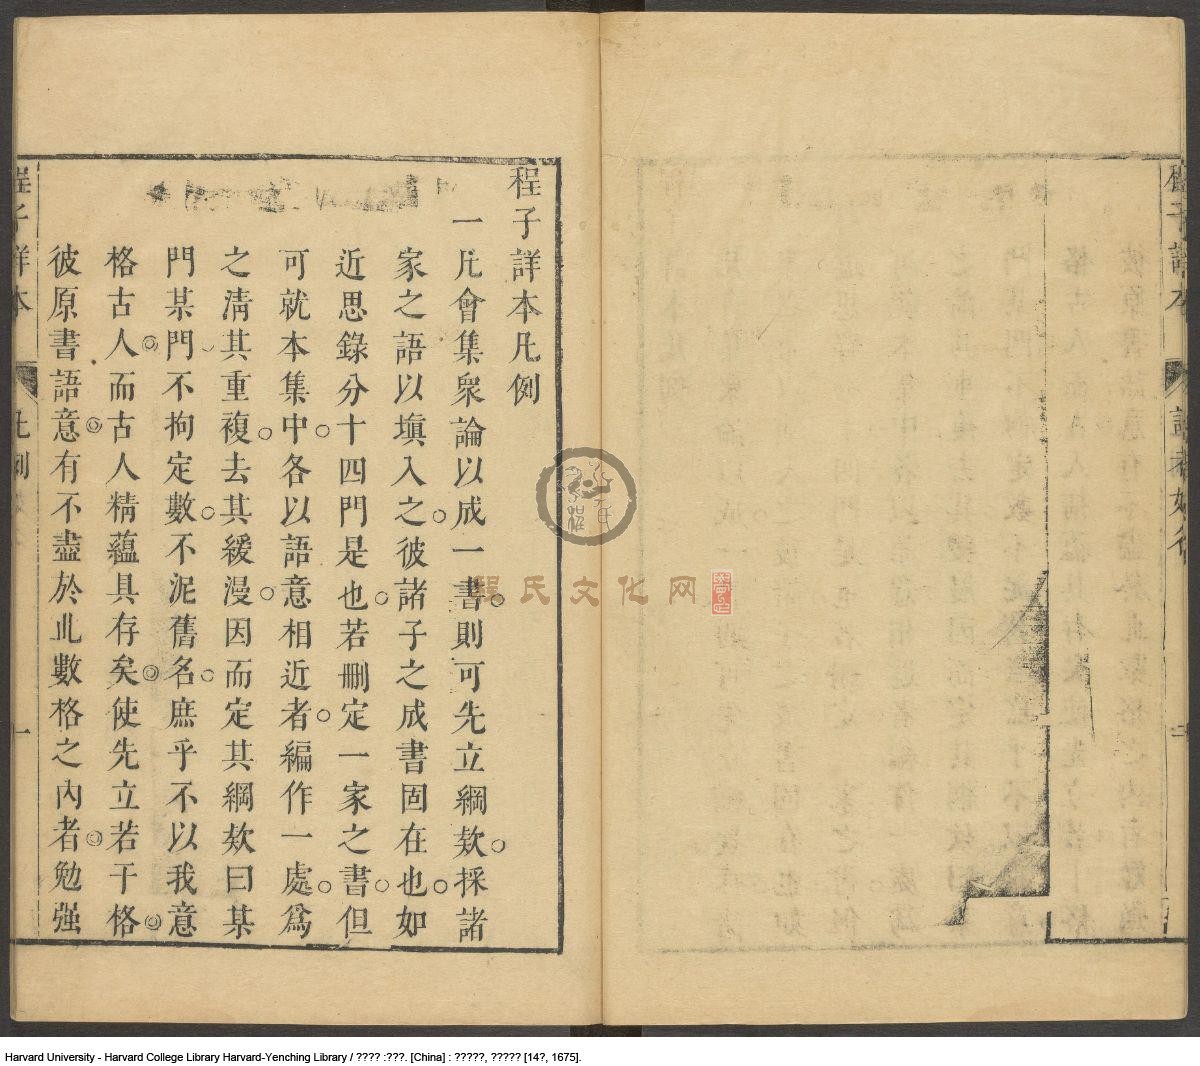 程子詳本
詳者姓名
二
程子詳本凡例
一凡會集衆論以成一書則可先立綱欵採諸
家之語以塡入之彼諸子之成書固在也如
近思錄分十四門是也若刪定一家之書但
可就本集中各以語意相近者編作一處爲
之淸其重複去其緩漫因而定其綱欵曰某
門某門不拘定數不泥舊名庶乎不以我意
格古人而古人精蘊具存矣使先立若干格
彼原書語意有不盡於此數格之內者勉强
程子詳本
凡例
一
程氏文化网
Harvard University - Harvard College Library Harvard-Yenching Library / ???? :???. [China] : ?????, ????? [14?, 1675].